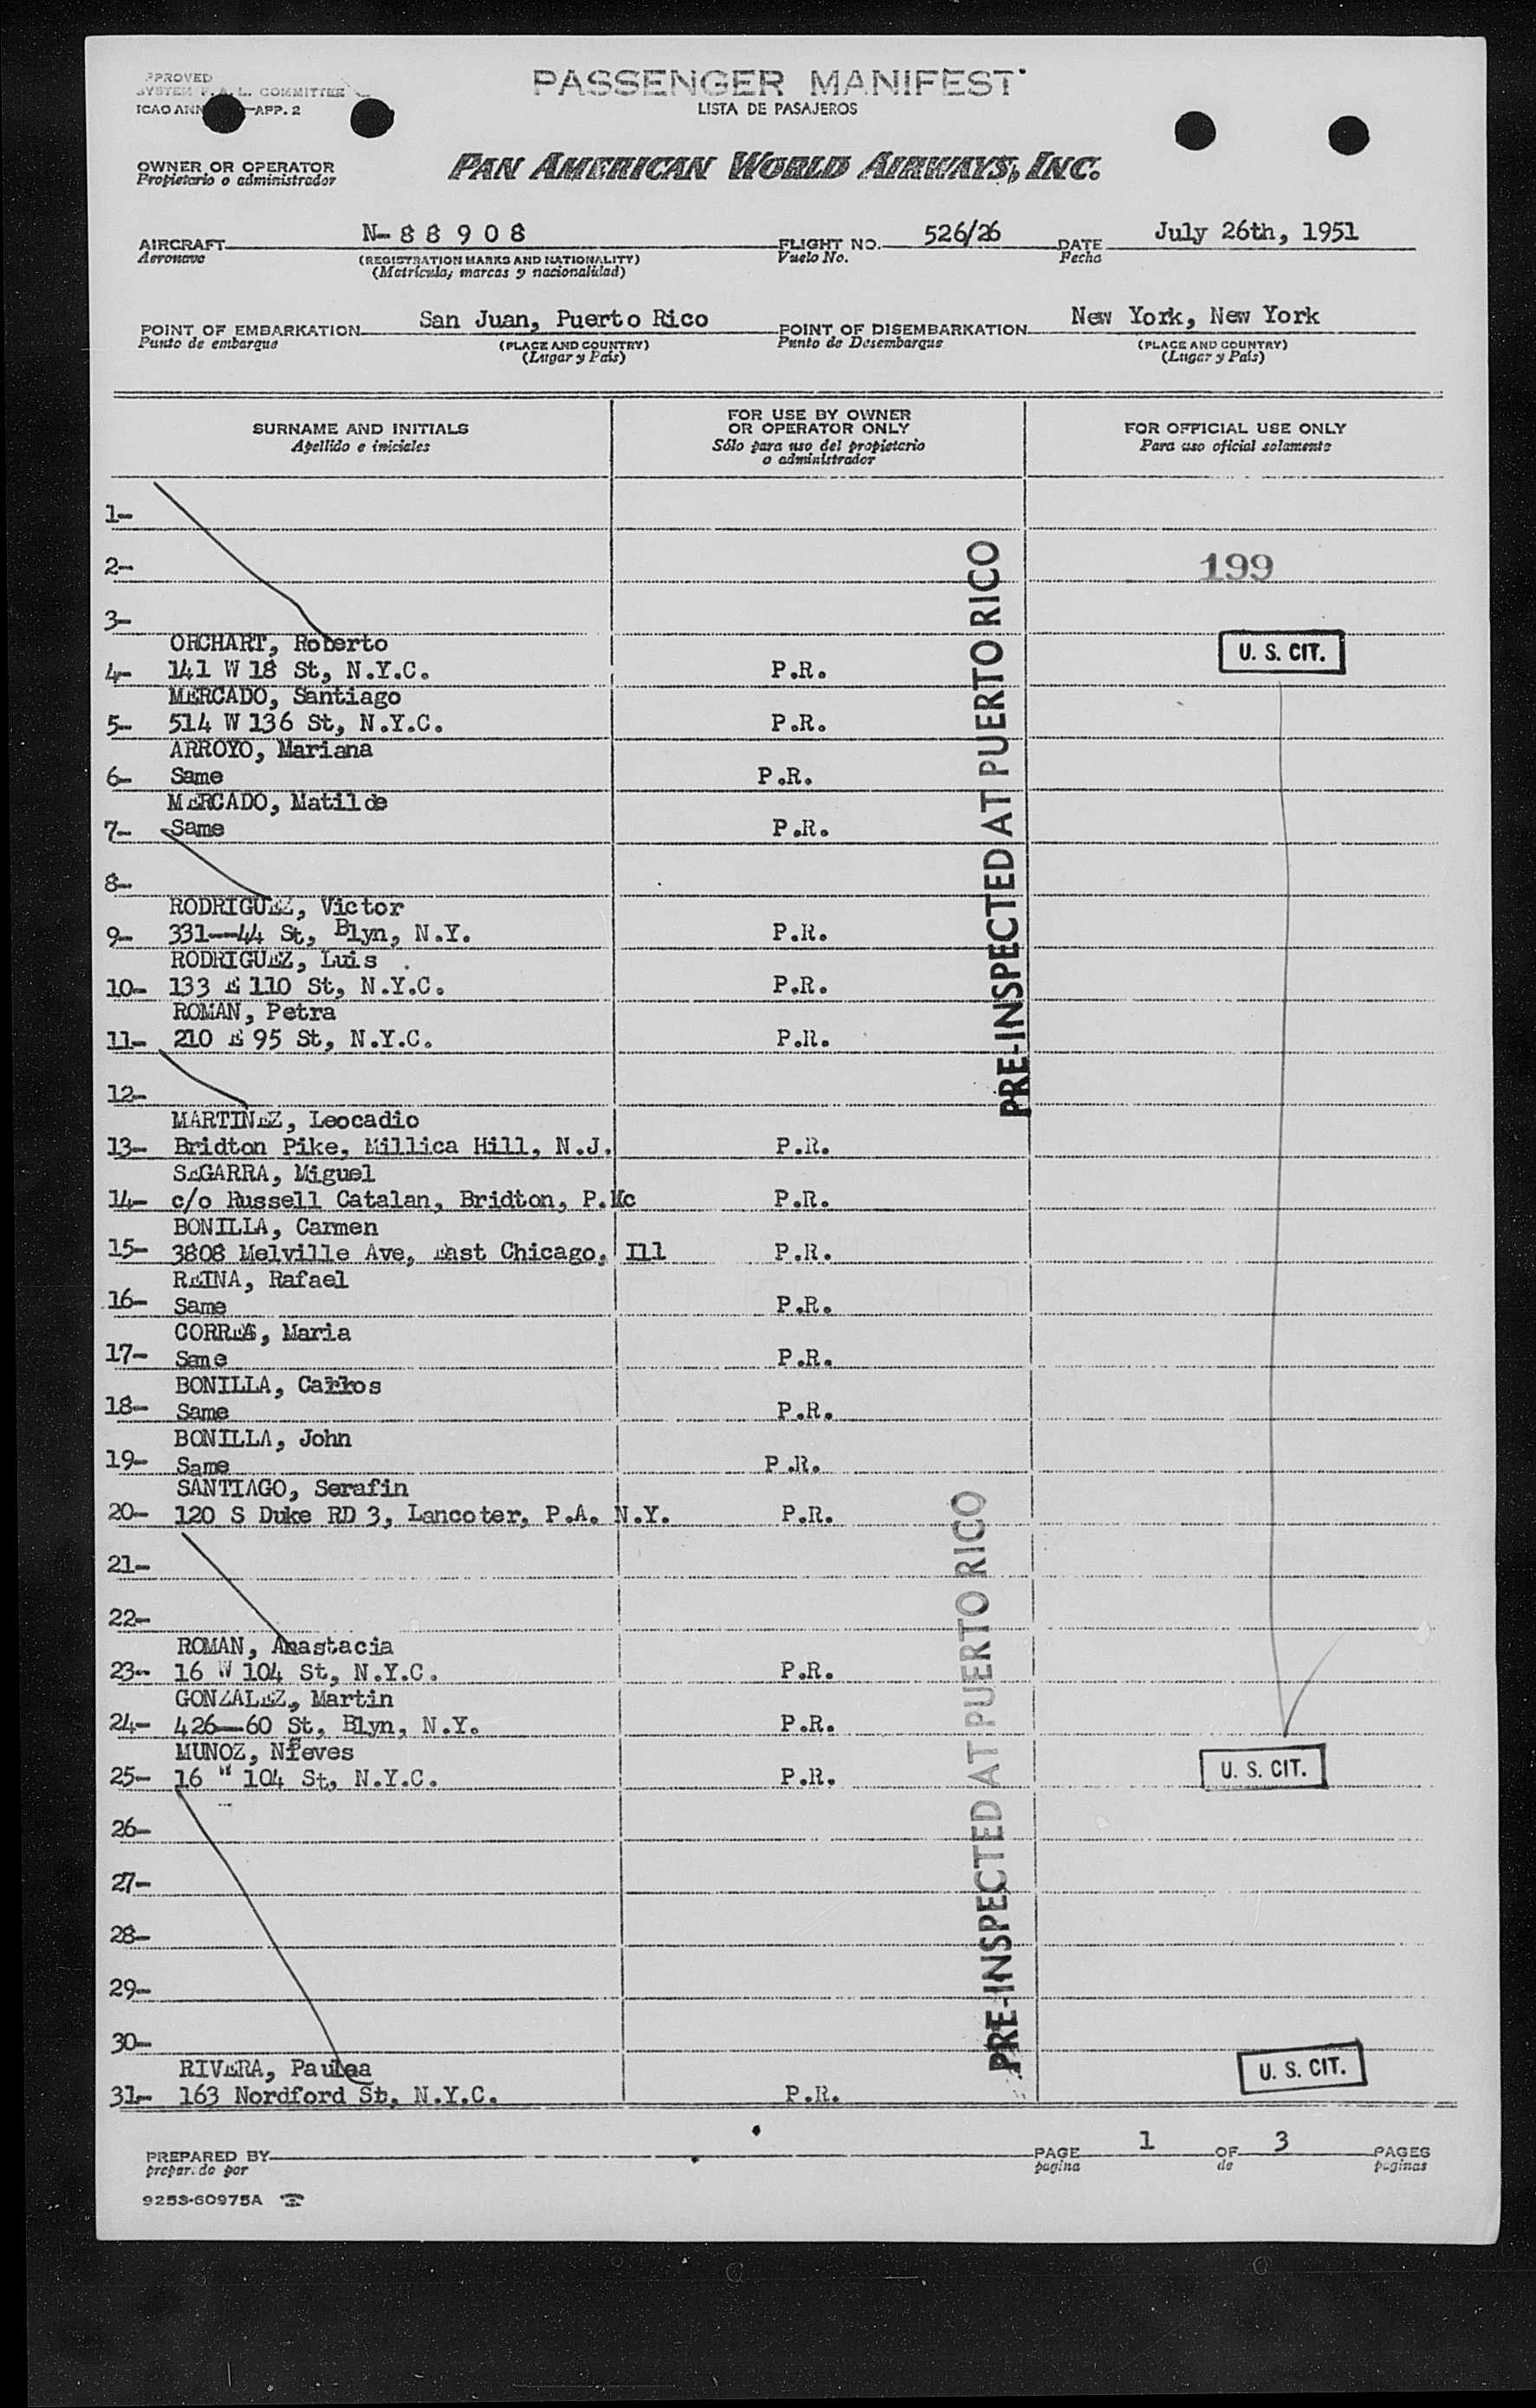 PASSENGER MANIFEST
LISTA DE PASAJEROS
APPROVED
SYSTEM F.A.L. COMMITTEE
ICAO ANN APP. 2
OWNER OR OPERATOR
Propietario o administrador
PAN AMERICAN WORLD AIRWAYS, INC.
AIRCRAFT N-88908 FLIGHT NO. 526/26 DATE July 26th, 1951
Aeronave (REGISTRATION MARKS AND NATIONALITY) Vuelo No. Fecha
(Matrícula, marcas y nacionalidad)
POINT OF EMBARKATION San Juan, Puerto Rico POINT OF DISEMBARKATION New York, New York
Punto de embarque (PLACE AND COUNTRY) Punto de Desembarque (PLACE AND COUNTRY)
(Lugar y País) (Lugar y País)
SURNAME AND INITIALS
Apellido e iniciales
FOR USE BY OWNER
OR OPERATOR ONLY
Sólo para uso del propietario
o administrador
FOR OFFICIAL USE ONLY
Para uso oficial solamente
1-
2- 199
3-
ORCHART, Roberto U. S. CIT.
4- 141 W 18 St, N.Y.C. P.R.
MERCADO, Santiago
5- 514 W 136 St, N.Y.C. P.R.
ARROYO, Mariana
6- Same P.R.
MERCADO, Matilde
7- Same P.R.
8-
RODRIGUEZ, Victor
9- 331--44 St, Blyn, N.Y. P.R.
RODRIGUEZ, Luis
10- 133 E 110 St, N.Y.C. P.R.
ROMAN, Petra
11- 210 E 95 St, N.Y.C. P.R.
12-
MARTINEZ, Leocadio
13- Bridton Pike, Millica Hill, N.J. P.R.
SEGARRA, Miguel
14- c/o Russell Catalan, Bridton, P.Mc P.R.
BONILLA, Carmen
15- 3808 Melville Ave, East Chicago, Ill P.R.
REINA, Rafael
16- Same P.R.
CORREA, Maria
17- Same P.R.
BONILLA, Carlos
18- Same P.R.
BONILLA, John
19- Same P.R.
SANTIAGO, Serafin
20- 120 S Duke RD 3, Lancoter, P.A. N.Y. P.R.
21-
22-
ROMAN, Anastacia
23- 16 W 104 St, N.Y.C. P.R.
GONZALEZ, Martin
24- 426--60 St, Blyn, N.Y. P.R.
MUNOZ, Nieves
25- 16 W 104 St, N.Y.C. P.R. U. S. CIT.
26-
27-
28-
29-
30-
RIVERA, Paulaa U. S. CIT.
31- 163 Nordford St, N.Y.C. P.R.
PRE-INSPECTED AT PUERTO RICO
PRE-INSPECTED AT PUERTO RICO
PREPARED BY PAGE 1 OF 3 PAGES
preparado por pagina de paginas
9253-60975A